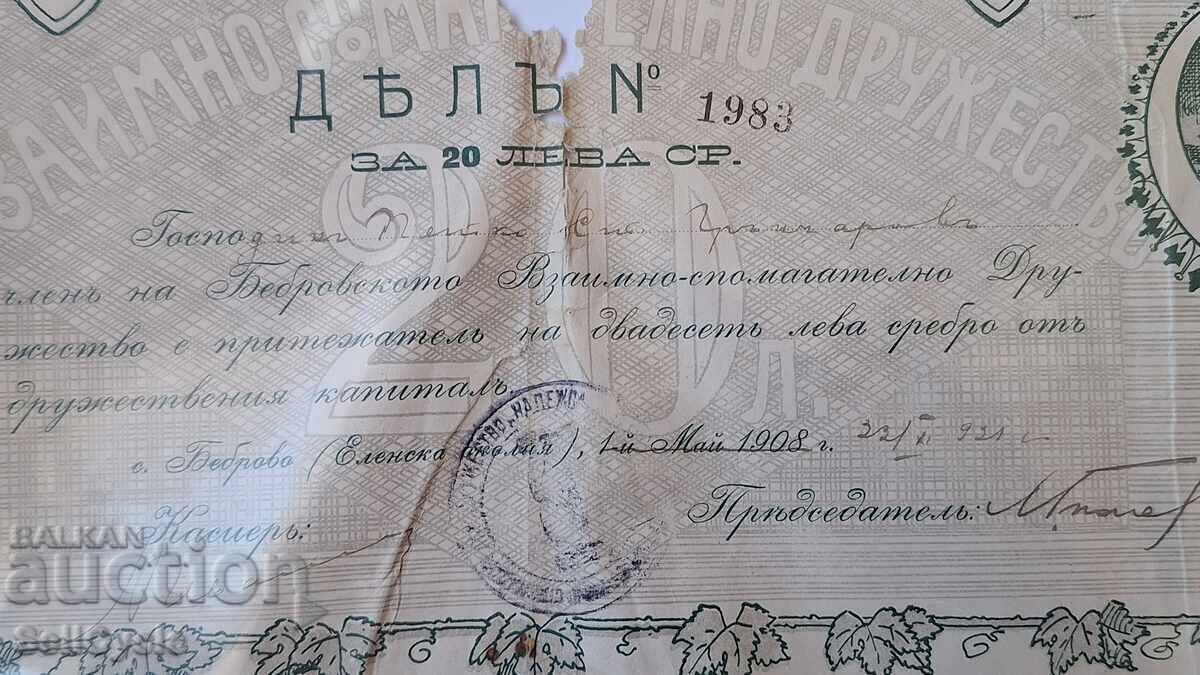 ЗАИМНО СПОМАГАТЕЛНО ДРУЖЕСТВО
ДѢЛЪ № 1983
ЗА 20 ЛЕВА СР.
20 л.
Господинъ Пенко
членъ на Бебровското Взаимно-спомагателно Дру-
жество е притежатель на двадесеть лева сребро отъ
дружествения капиталъ.
с. Беброво (Еленска околия), 1-й Май 1908 г. 22/XI 921 г
Касиеръ: Прѣдседатель:
НАДЕЖДА
BALKAN
auction